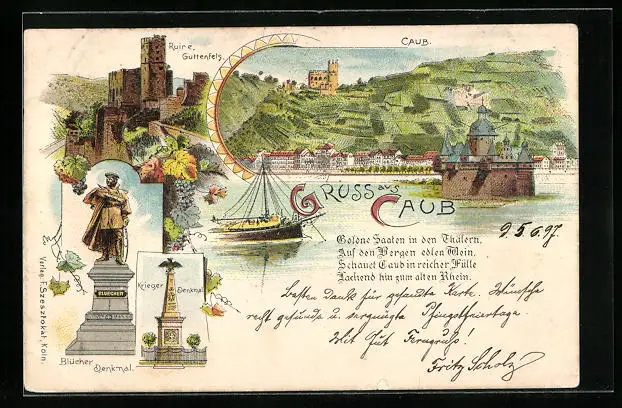 Ruine
Guttenfels.
CAUB.
GRUSS aus
CAUB
9.5.6.97.
Goldne Saaten in den Thälern,
Auf den Bergen edlen Wein,
Schauet Caub in reicher Fülle
Lachend hin zum alten Rhein.
Besten Dank für gesandte Karte. Wünsche
recht gesunde u. vergnügte Pfingstfeiertage.
Mit Gut Ferngruß!
Fritz Scholz
BLUECHER
Blücher
Denkmal.
Krieger Denkmal
Verlag F. Szesztokat, Köln.